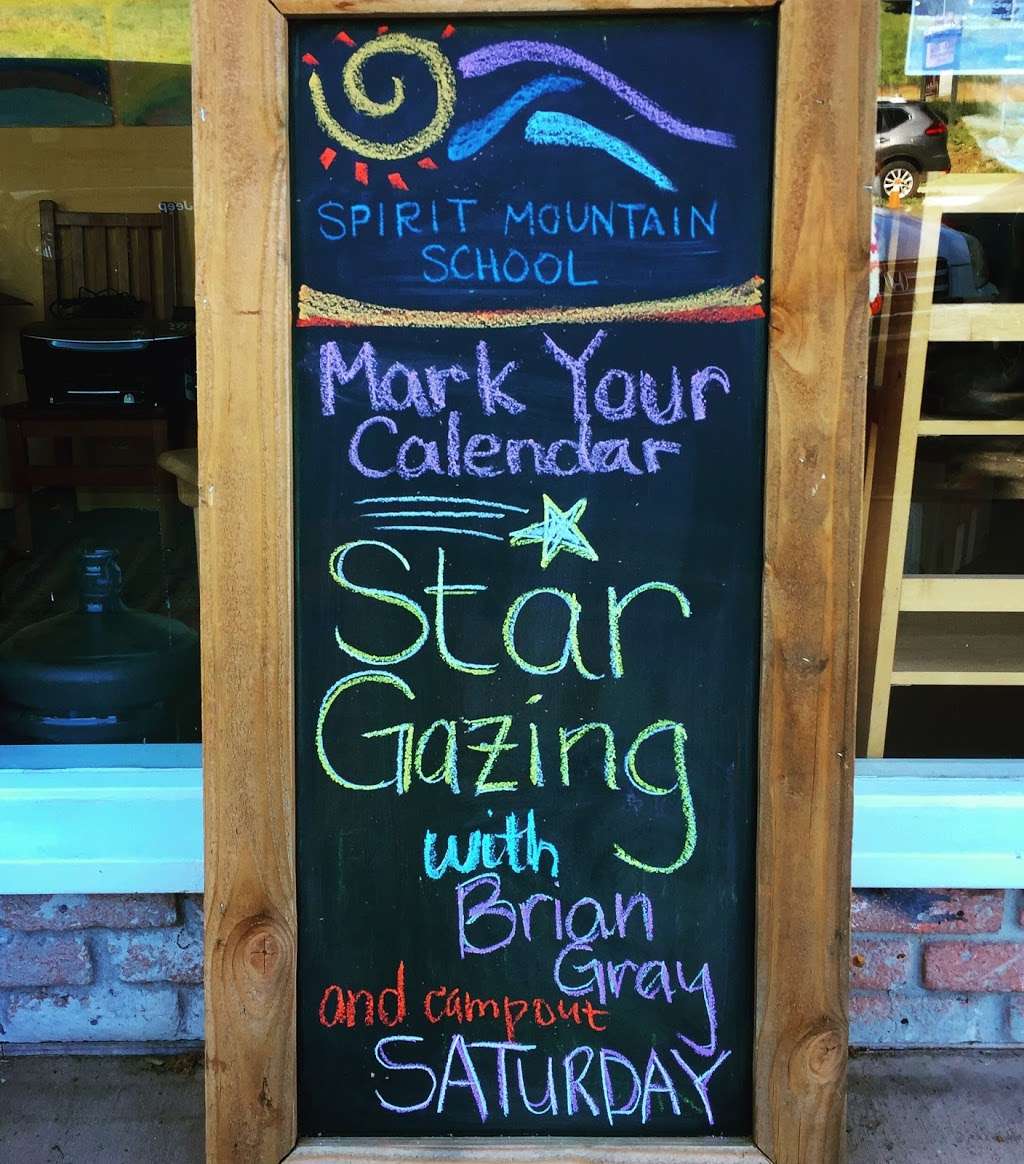 SPIRIT MOUNTAIN
SCHOOL
Mark Your
Calendar
Star
Gazing
with
Brian
Gray
and campout
SATURDAY
Jeep